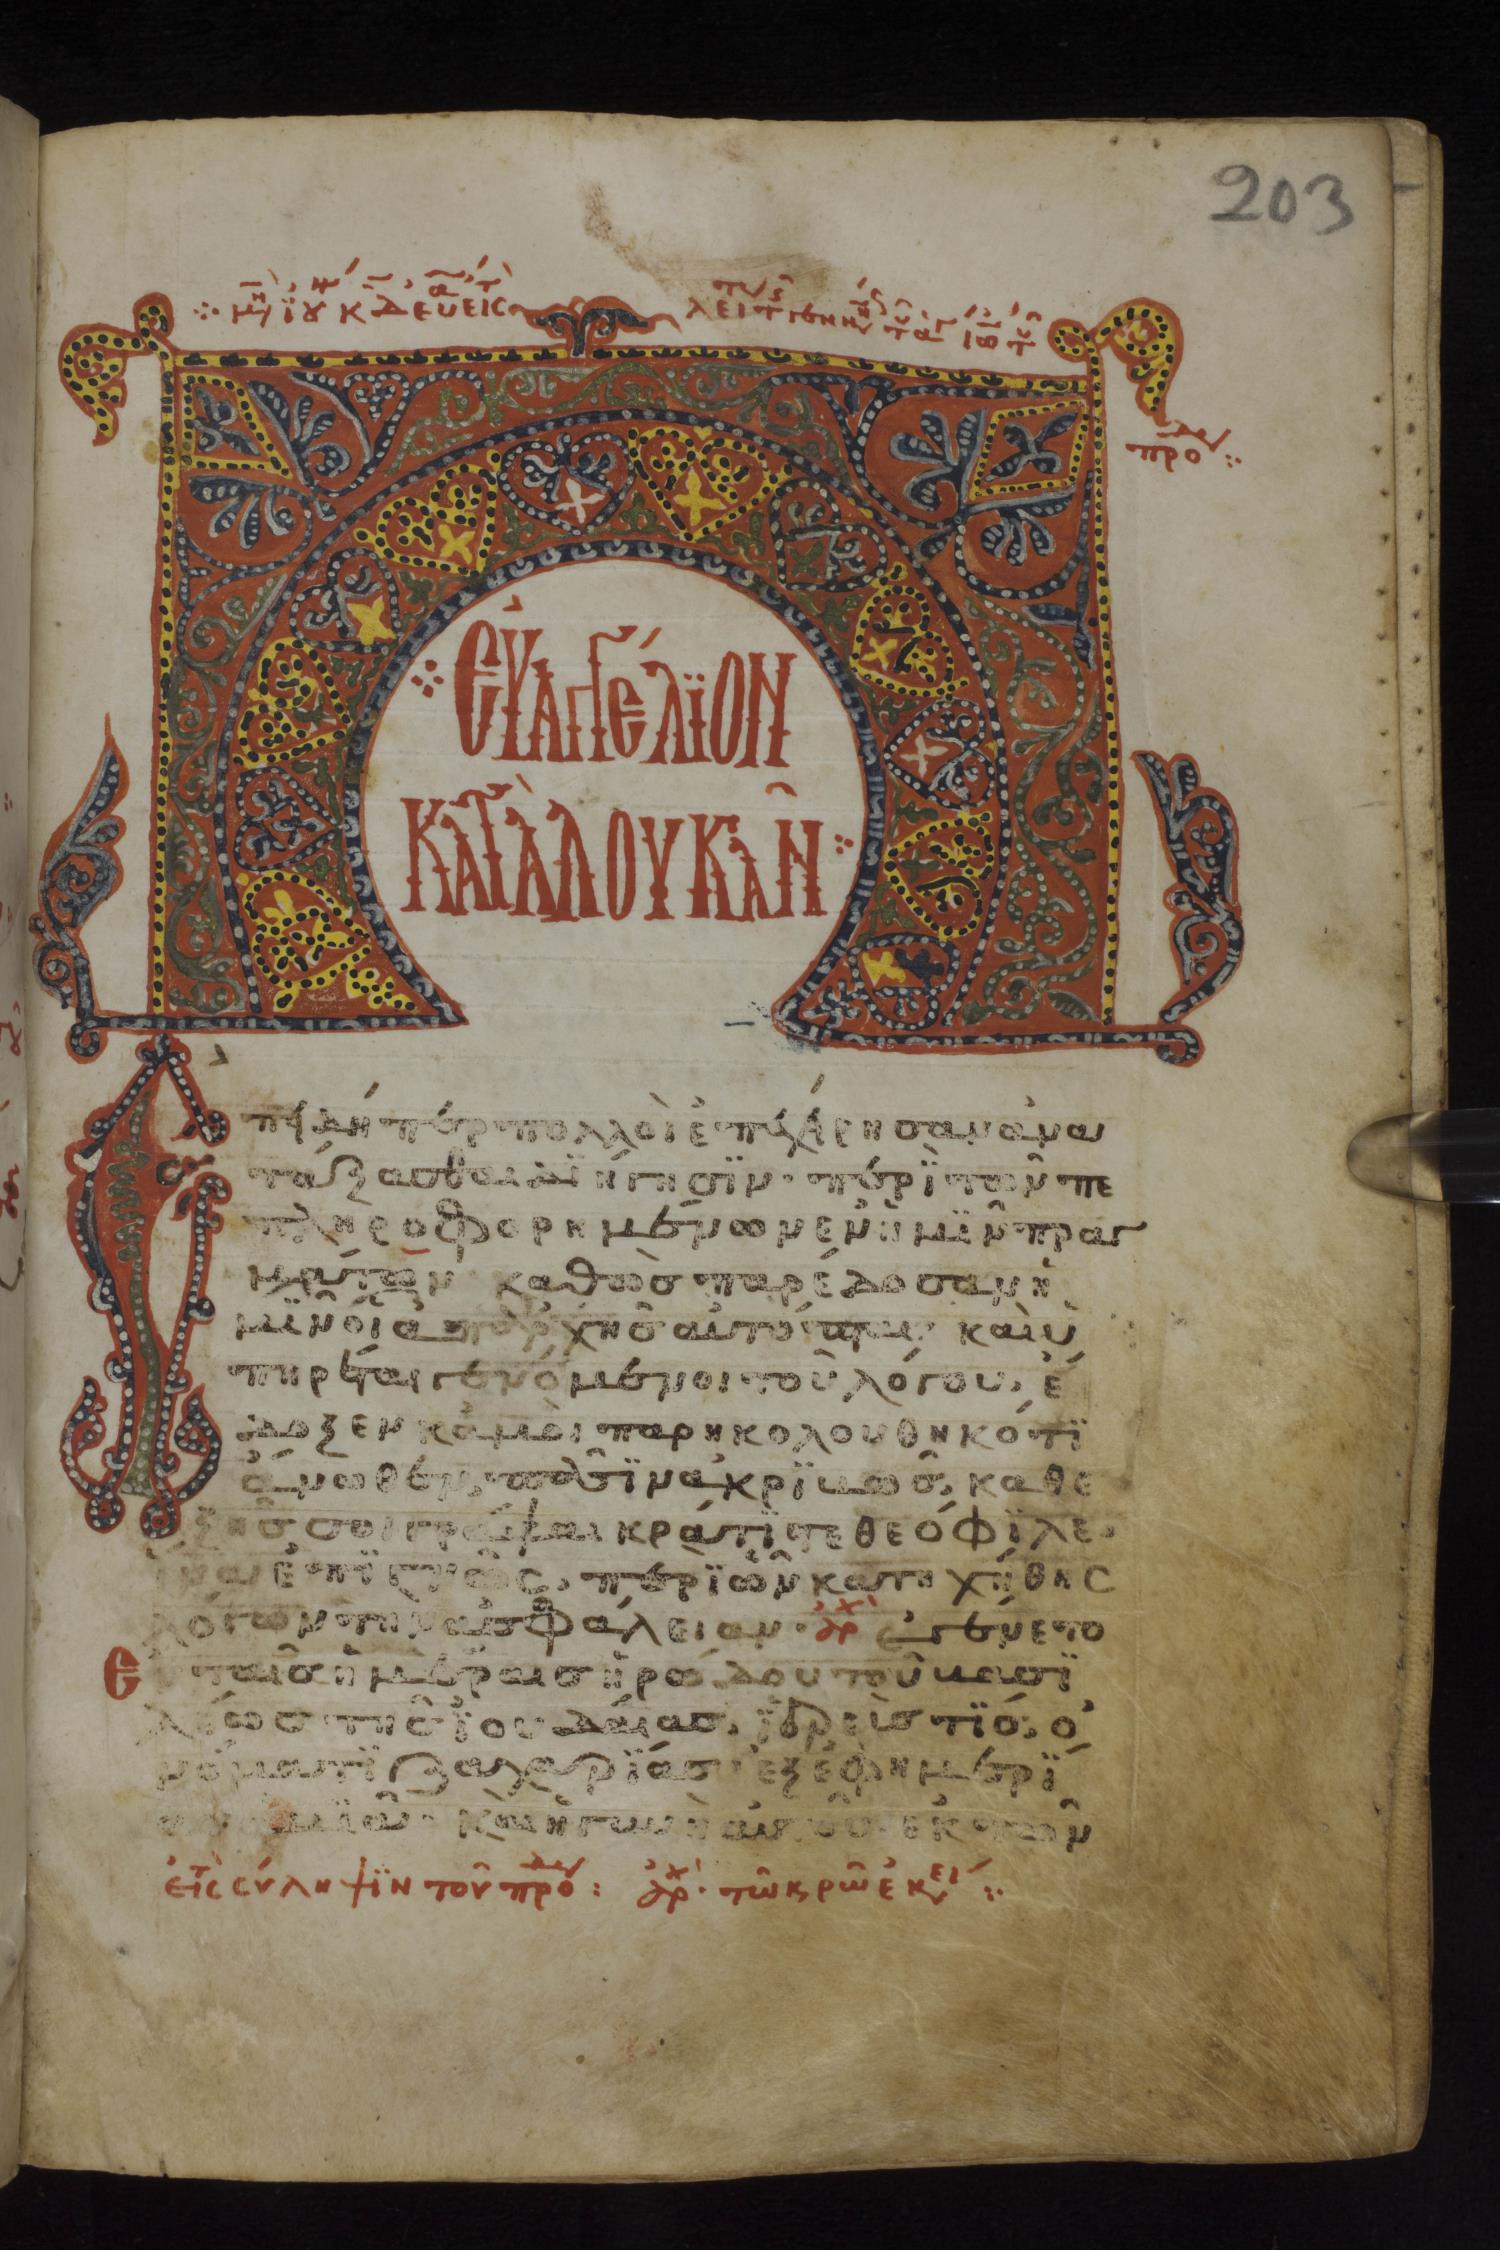 203
μη ϊου κδ ευ εις
προ
ΕΥΑΓΓΕΛΪΟΝ
ΚΑΤΑ ΛΟΥΚΑΝ
πηδήπερ πολλοὶ ἐπεχείρησαν ἀνα
τάξασθαι διήγησϊν· περὶ τῶν πε
πληροφορημένων ἐν ἡμῖν πραγ
μάτων καθὼς παρέδοσαν ἡ
μῖν οἱ ἀπαρχῆς αὐτόπται· καὶ ὑ
πηρέται γενόμενοι τοῦ λόγου, ἔ
δοξεν καμοὶ παρηκολουθηκότϊ
ἄνωθεν πᾶσϊν ἀκρϊβῶς, καθε
ξῆς σοι γράψαι κράτϊστε θεόφϊλε,
ἵνα ἐπϊγνῶς, περὶ ὧν κατηχήθης
λόγων τὴν ἀσφάλειαν· ἀρχ ἐγένετο
Ε ταῖς ἡμέραις ἡρώδου τοῦ βασϊ
λέως τῆς ἰουδαίας, ἱερεύς τϊς, ὀ
νόματϊ ζαχαρϊας ἐξ ἐφημερϊ
ας ἀβϊά· καὶ ἡ γυνὴ αὐτοῦ ἐκ τῶν
εἰς τ σύληψϊν τοῦ προ: ἀρχ· τῶ κρῶ ἐκει: